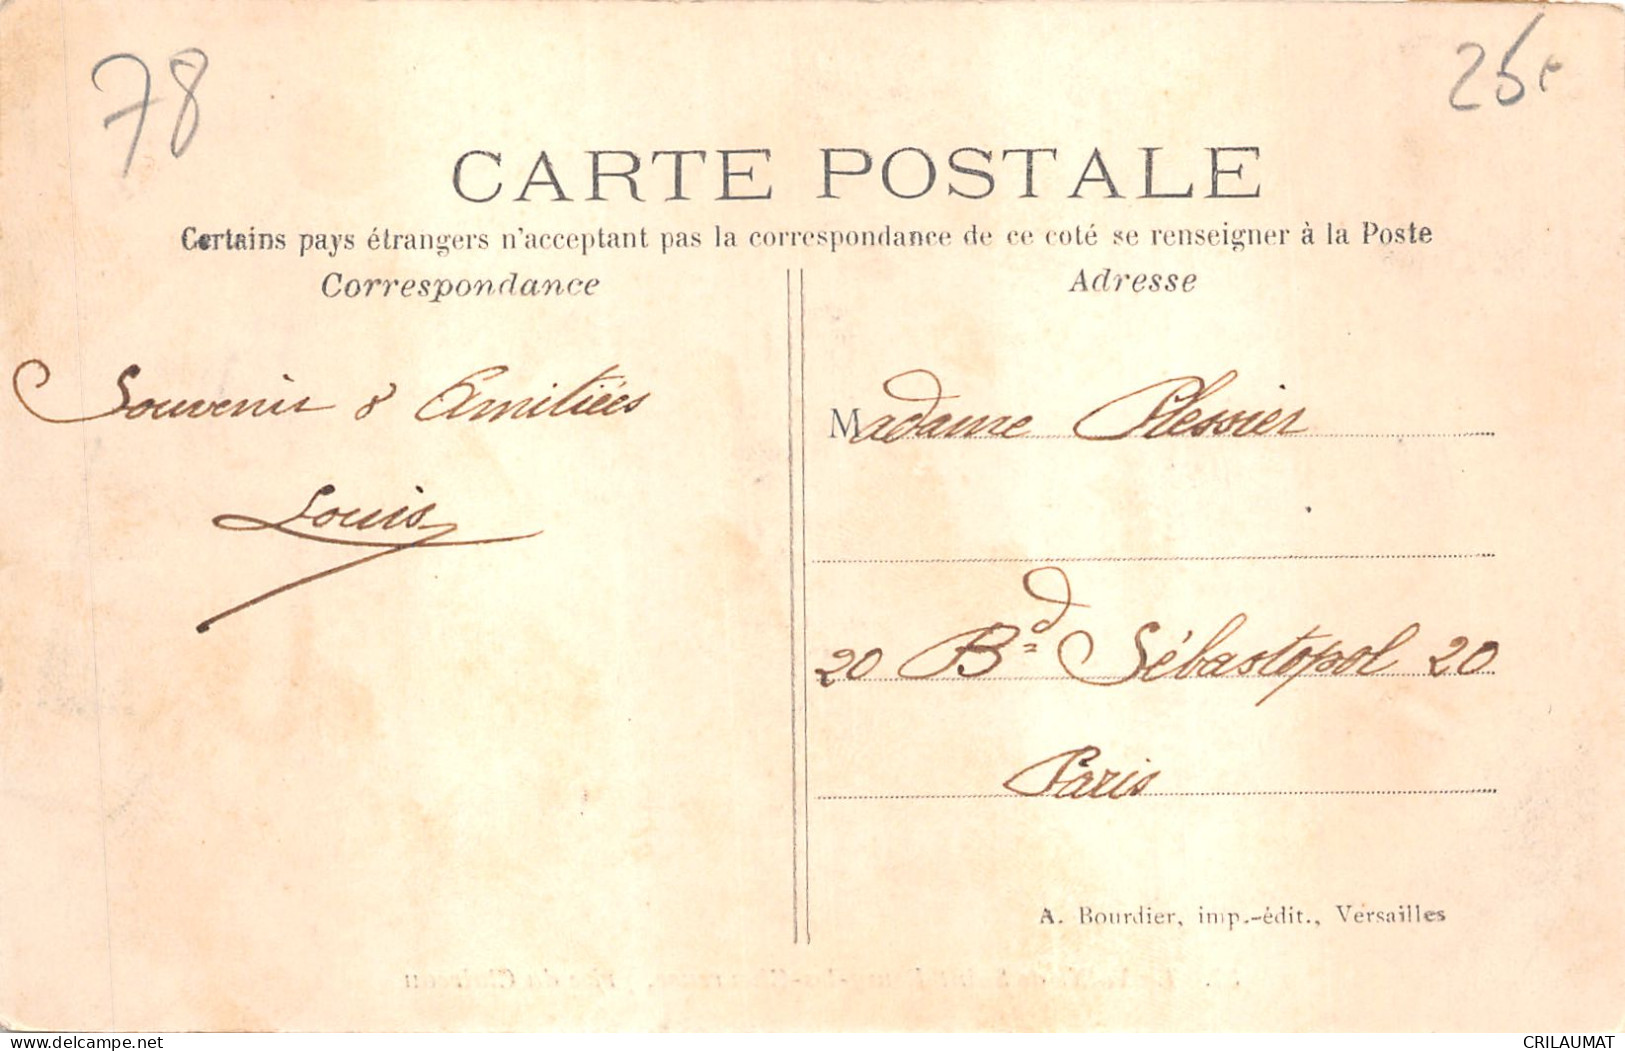 78
25
CARTE POSTALE
Certains pays étrangers n'acceptant pas la correspondance de ce coté se renseigner à la Poste
Correspondance
Adresse
Souvenir & Amitiées
Louis
Madame Plessier
20 Bd Sébastopol 20
Paris
A. Bourdier, imp.-édit., Versailles
www.delcampe.net
CRILAUMAT